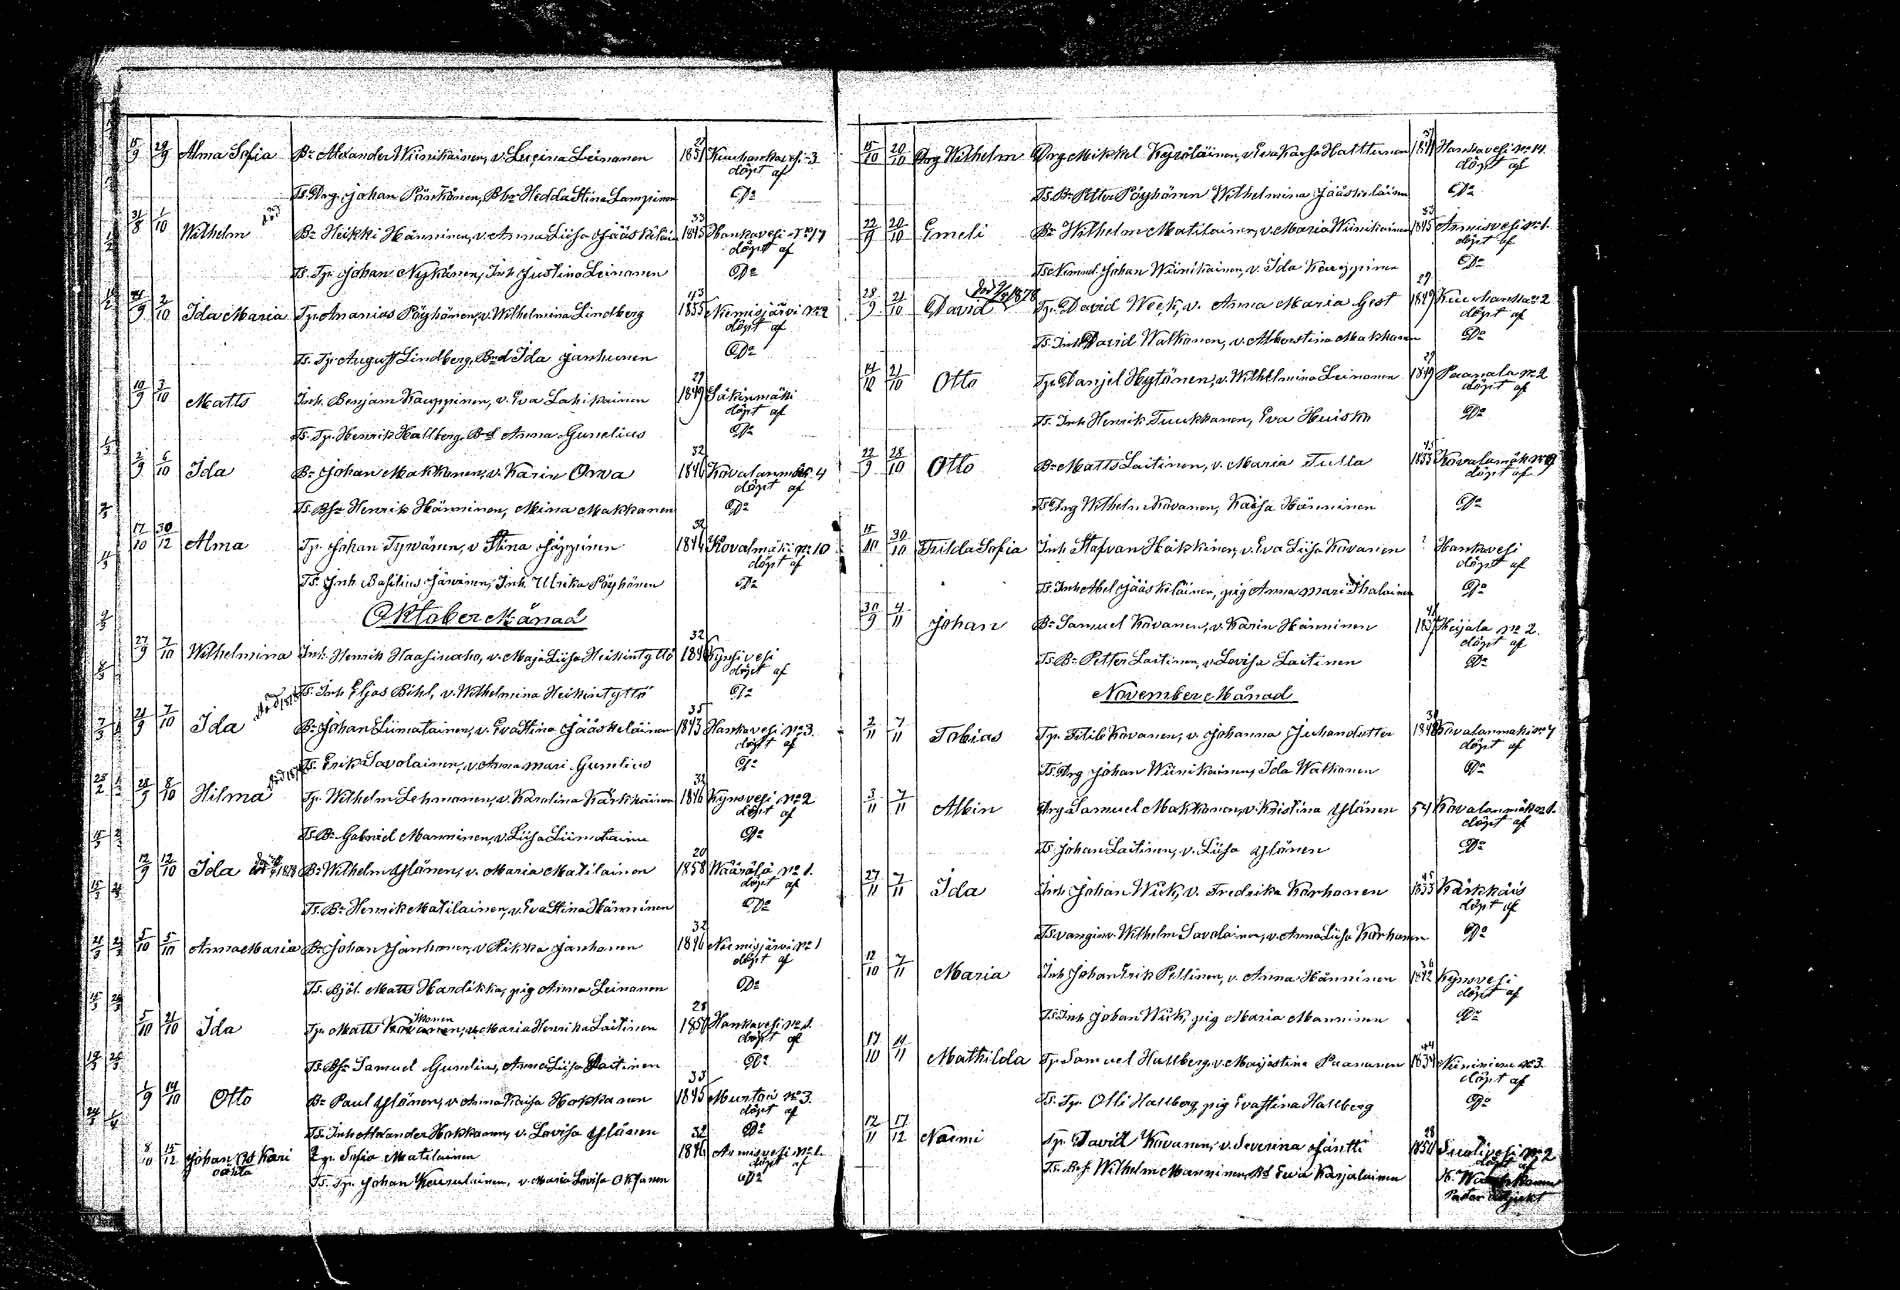 15/9 29/9 Alma Sofia Br Alexander Wiinikainen, v. Lucina Leinonen 27 1851 Kuuhankavesi 3
döpt af
Ts. Drg. Johan Pönkänen, Bhr Hedda Stina Lampinen Do
31/8 1/10 Wilhelm död Br Heikki Hänninen, v. Anna Liisa Jääskeläin 33 1845 Hankavesi No 17
döpt af
Ts. Tp. Johan Nykänen, Inh Justina Leinonen Do
24/9 2/10 Ida Maria Tp. Ananias Pöyhönen, v. Wilhelmina Lindberg 43 1835 Niemisjärvi No 2
döpt af
Ts. Tp. August Lindberg, Bd Ida Janhunen Do
10/9 3/10 Matts Inh. Benjam Kauppinen, v. Eva Lahikainen 29 1849 Säkinmäki
döpt af
Ts. Tp. Henrik Hallberg, Bd Anna Gunelius Do
2/9 6/10 Ida Br Johan Makkonen, v. Karin Orva 32 1846 Kovalanmäki 4
döpt af
Ts. Bsr Henrik Hänninen, Mina Makkonen Do
17/10 30/12 Alma Tp. Johan Tyrvänen, v Stina Jäppinen 32 1846 Kovalmäki No 10
döpt af
Ts. Inh Basilius Järvinen, Inh. Ulrika Pöyhönen Do
Oktober Månad
27/9 7/10 Wilhelmina Inh. Henrik Haasiwaho, v. Maja Liisa Heikintyttö 32 1846 Kynsivesi
döpt af
Ts. Inh Eljas Bihl, v. Wilhelmina Heikintyttö Do
21/9 7/10 Ida Br Johan Liimatainen, v. Eva Stina Jääskeläinen 35 1843 Hankavesi No 3.
döpt af
Ts. Erik Savolainen, v. Anna Mari Gunelius Do
28/9 8/10 Hilma Tp. Wilhelm Lehmonen, v. Karolina Kärkkäinen 32 1846 Kynsvesi No 2
döpt af
Ts. Br Gabriel Manninen, v. Liisa Liimatainen Do
12/9 12/10 Ida Br Wilhelm Ylönen, v. Maria Matilainen 20 1858 Wäärälä No 1.
döpt af
Ts. Br Henrik Matilainen, v. Eva Stina Hänninen Do
5/10 5/10 Anna Maria Br Johan Janhonen, v Riikka Janhonen 32 1846 Niemisjärvi No 1
döpt af
Ts. Bjöl. Matts Hardikka, pig Anna Leinonen Do
5/10 21/10 Ida Tp. Matts Kovanen, v. Maria Henrika Laitinen 28 1850 Hankavesi No 1.
döpt af
Ts. Bsr Samuel Gunelius, Anna Liisa Laitinen Do
1/9 14/10 Otto Br Paul Ylönen, v. Anna Kaisa Hokkanen 33 1845 Muntoi No 3.
döpt af
Ts. Inh Alexander Hokkanen, v. Lovisa Ylönen Do
8/10 15/12 Johan Oskari oäkta Pig. Sofia Matilainen 32 1846 Armisvesi No 1.
döpt af
Ts. Tp. Johan Kauralainen, v. Maria Lovisa Oksanen Do
15/10 20/10 Drg Wilhelm Drg Mikkel Kyröläinen, v Eva Karsa Halttunen Hankavesi No 14.
döpt af
Ts. Br Petter Pöyhönen Wilhelmina Jääskeläinen Do
22/9 20/10 Emeli Br Wilhelm Matilainen, v. Maria Wiinikainen 33 1845 Armisvesi No 1.
döpt af
Ts. Nämnd. Johan Wiinikainen, v. Ida Kauppinen Do
28/9 21/10 David Tp. David Week, v. Anna Maria Gest 29 1849 Kuuhanka No 2
döpt af
Ts. Inh David Walkonen, v. Albertina Makkonen Do
14/10 21/10 Otto Tp. Danjel Hytönen, v. Wilhelmina Leinonen 29 1849 Paanala No 2
döpt af
Ts. Inh Henrik Tuukkanen, Eva Huisko Do
22/9 28/10 Otto Br Matts Laitinen, v. Maria Tulla 45 1833 Kovalamäki No 9
döpt af
Ts. Drg Wilhelm Kovanen, Kaisa Hänninen Do
15/10 30/10 Frilda Sofia Inh Stafvan Häkkinen, v. Eva Liisa Kovanen ? Hankavesi
döpt af
Ts. Inh Abel Jääskeläinen, pig Anna Mari Ihalainen Do
30/9 4/11 Johan Br Samuel Kovanen, v. Karin Hänninen 41 1837 Heijala No 2.
döpt af
Ts. Br Petter Laitinen, v. Lovisa Laitinen Do
November Månad
2/11 7/11 Tobias Tp. Kovanen, v. Johanna Juhandotter 30 1848 Kovalanmäki No 7
döpt af
Ts. Drg Johan Wiinikainen, Ida Walkonen Do
3/11 7/11 Albin Drg Samuel Makkonen, v. Kristina Ylönen 54 Kovalanmäki No 1.
döpt af
Ts. Johan Laitinen, v. Liisa Ylönen Do
27/11 7/11 Ida Inh Johan Wick, v. Fredrika Korhonen 45 1833 Kärkkäis
döpt af
Ts. Wilhelm Savolainen, v. Anna Liisa Korhonen Do
12/10 7/11 Maria Inh Johan Erik Peltinen, v. Anna Hänninen 36 1842 Kynsvesi
döpt af
Ts. Inh Johan Wick, pig Maria Manninen Do
17/10 11/11 Mathilda Tp. Samuel Hallberg, v. Majastina Paananen 44 1834 Niininiemi No 3.
döpt af
Ts. Tp. Otto Hallberg, pig Eva Stina Hallberg Do
12/11 17/12 Naimi Tp. David Kovanen, v. Severina Jäntti 28 1850 Suolivesi No 2
döpt af
Ts. Bsr Wilhelm Manninen, Bd Eva Karjalainen K.
Pastor Adjunkt